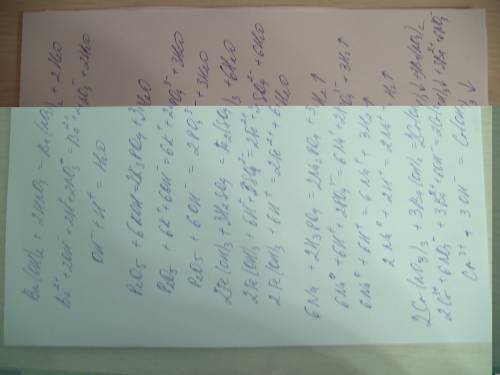 Ba(OH)2 + 2HNO3 = Ba(NO3)2 + 2H2O
Ba2+ + 2OH- + 2H+ + 2NO3- = Ba2+ + 2NO3- + 2H2O
OH- + H+ = H2O
P2O5 + 6KOH = 2K3PO4 + 3H2O
P2O5 + 6K+ + 6OH- = 6K+ + 2PO4 3- + 3H2O
P2O5 + 6OH- = 2PO4 3- + 3H2O
2Fe(OH)3 + 3H2SO4 = Fe2(SO4)3 + 6H2O
2Fe(OH)3 + 6H+ + 3SO4 2- = 2Fe3+ + 3SO4 2- + 6H2O
2Fe(OH)3 + 6H+ = 2Fe3+ + 6H2O
6Na + 2H3PO4 = 2Na3PO4 + 3H2↑
6Na0 + 6H+ + 2PO4 3- = 6Na+ + 2PO4 3- + 3H2↑
6Na0 + 6H+ = 6Na+ + 3H2↑
2Na0 + 2H+ = 2Na+ + H2↑
2Cr(NO3)3 + 3Ba(OH)2 = 2Cr(OH)3↓ + 3Ba(NO3)2
2Cr3+ + 6NO3- + 3Ba2+ + 6OH- = 2Cr(OH)3↓ + 3Ba2+ + 6NO3-
Cr3+ + 3OH- = Cr(OH)3↓